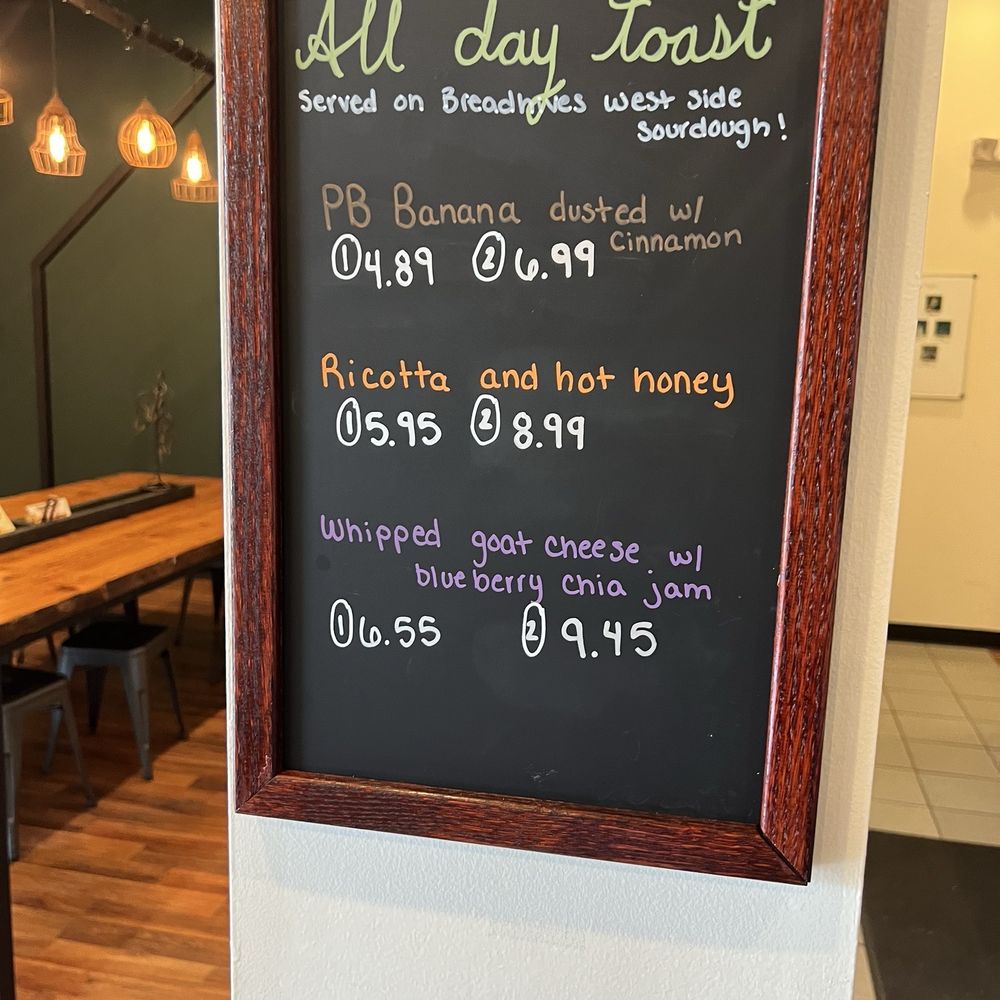 All day toast
Served on Breadhives west side
Sourdough!
PB Banana dusted w/
Cinnamon
① 4.89 ② 6.99
Ricotta and hot honey
① 5.95 ② 8.99
Whipped goat cheese w/
blueberry chia jam
① 6.55 ② 9.45